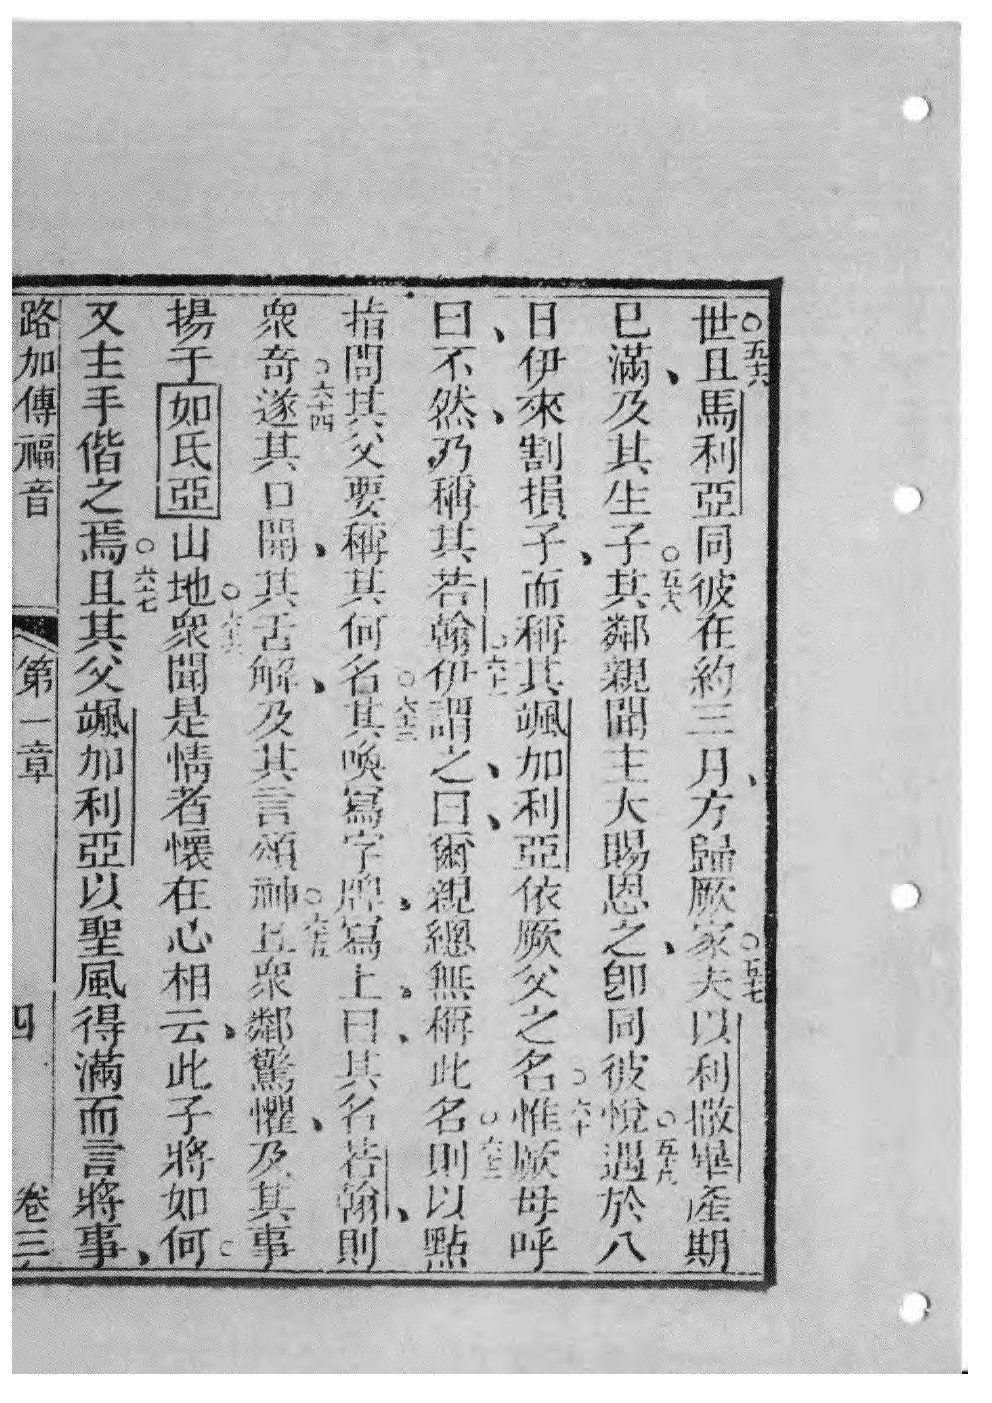 世○五十六且馬利亞同彼在約三月、方歸厥家○五十七夫以利撒畢產期
已滿、及其生子○五十八其鄰親聞主大賜恩之、卽同彼悅○五十九遇於八
日伊來割損子、而稱其颯加利亞依厥父之名○六十惟厥母呼
曰、不然、乃稱其若翰○六十一伊謂之、曰、爾親總無稱此名○六十二則以點
指問其父要稱其何名○六十三其喚寫字牌、寫上、曰、其名若翰、則
衆奇○六十四遂其口開、其舌解、及其言頌神○六十五且衆鄰驚懼、及其事
揚于如氐亞山地○六十六衆聞是情者懷在心相云、此子將如何。
又主手偕之焉○六十七且其父颯加利亞以聖風得滿而言將事、
路加傳福音 第一章 四 卷三